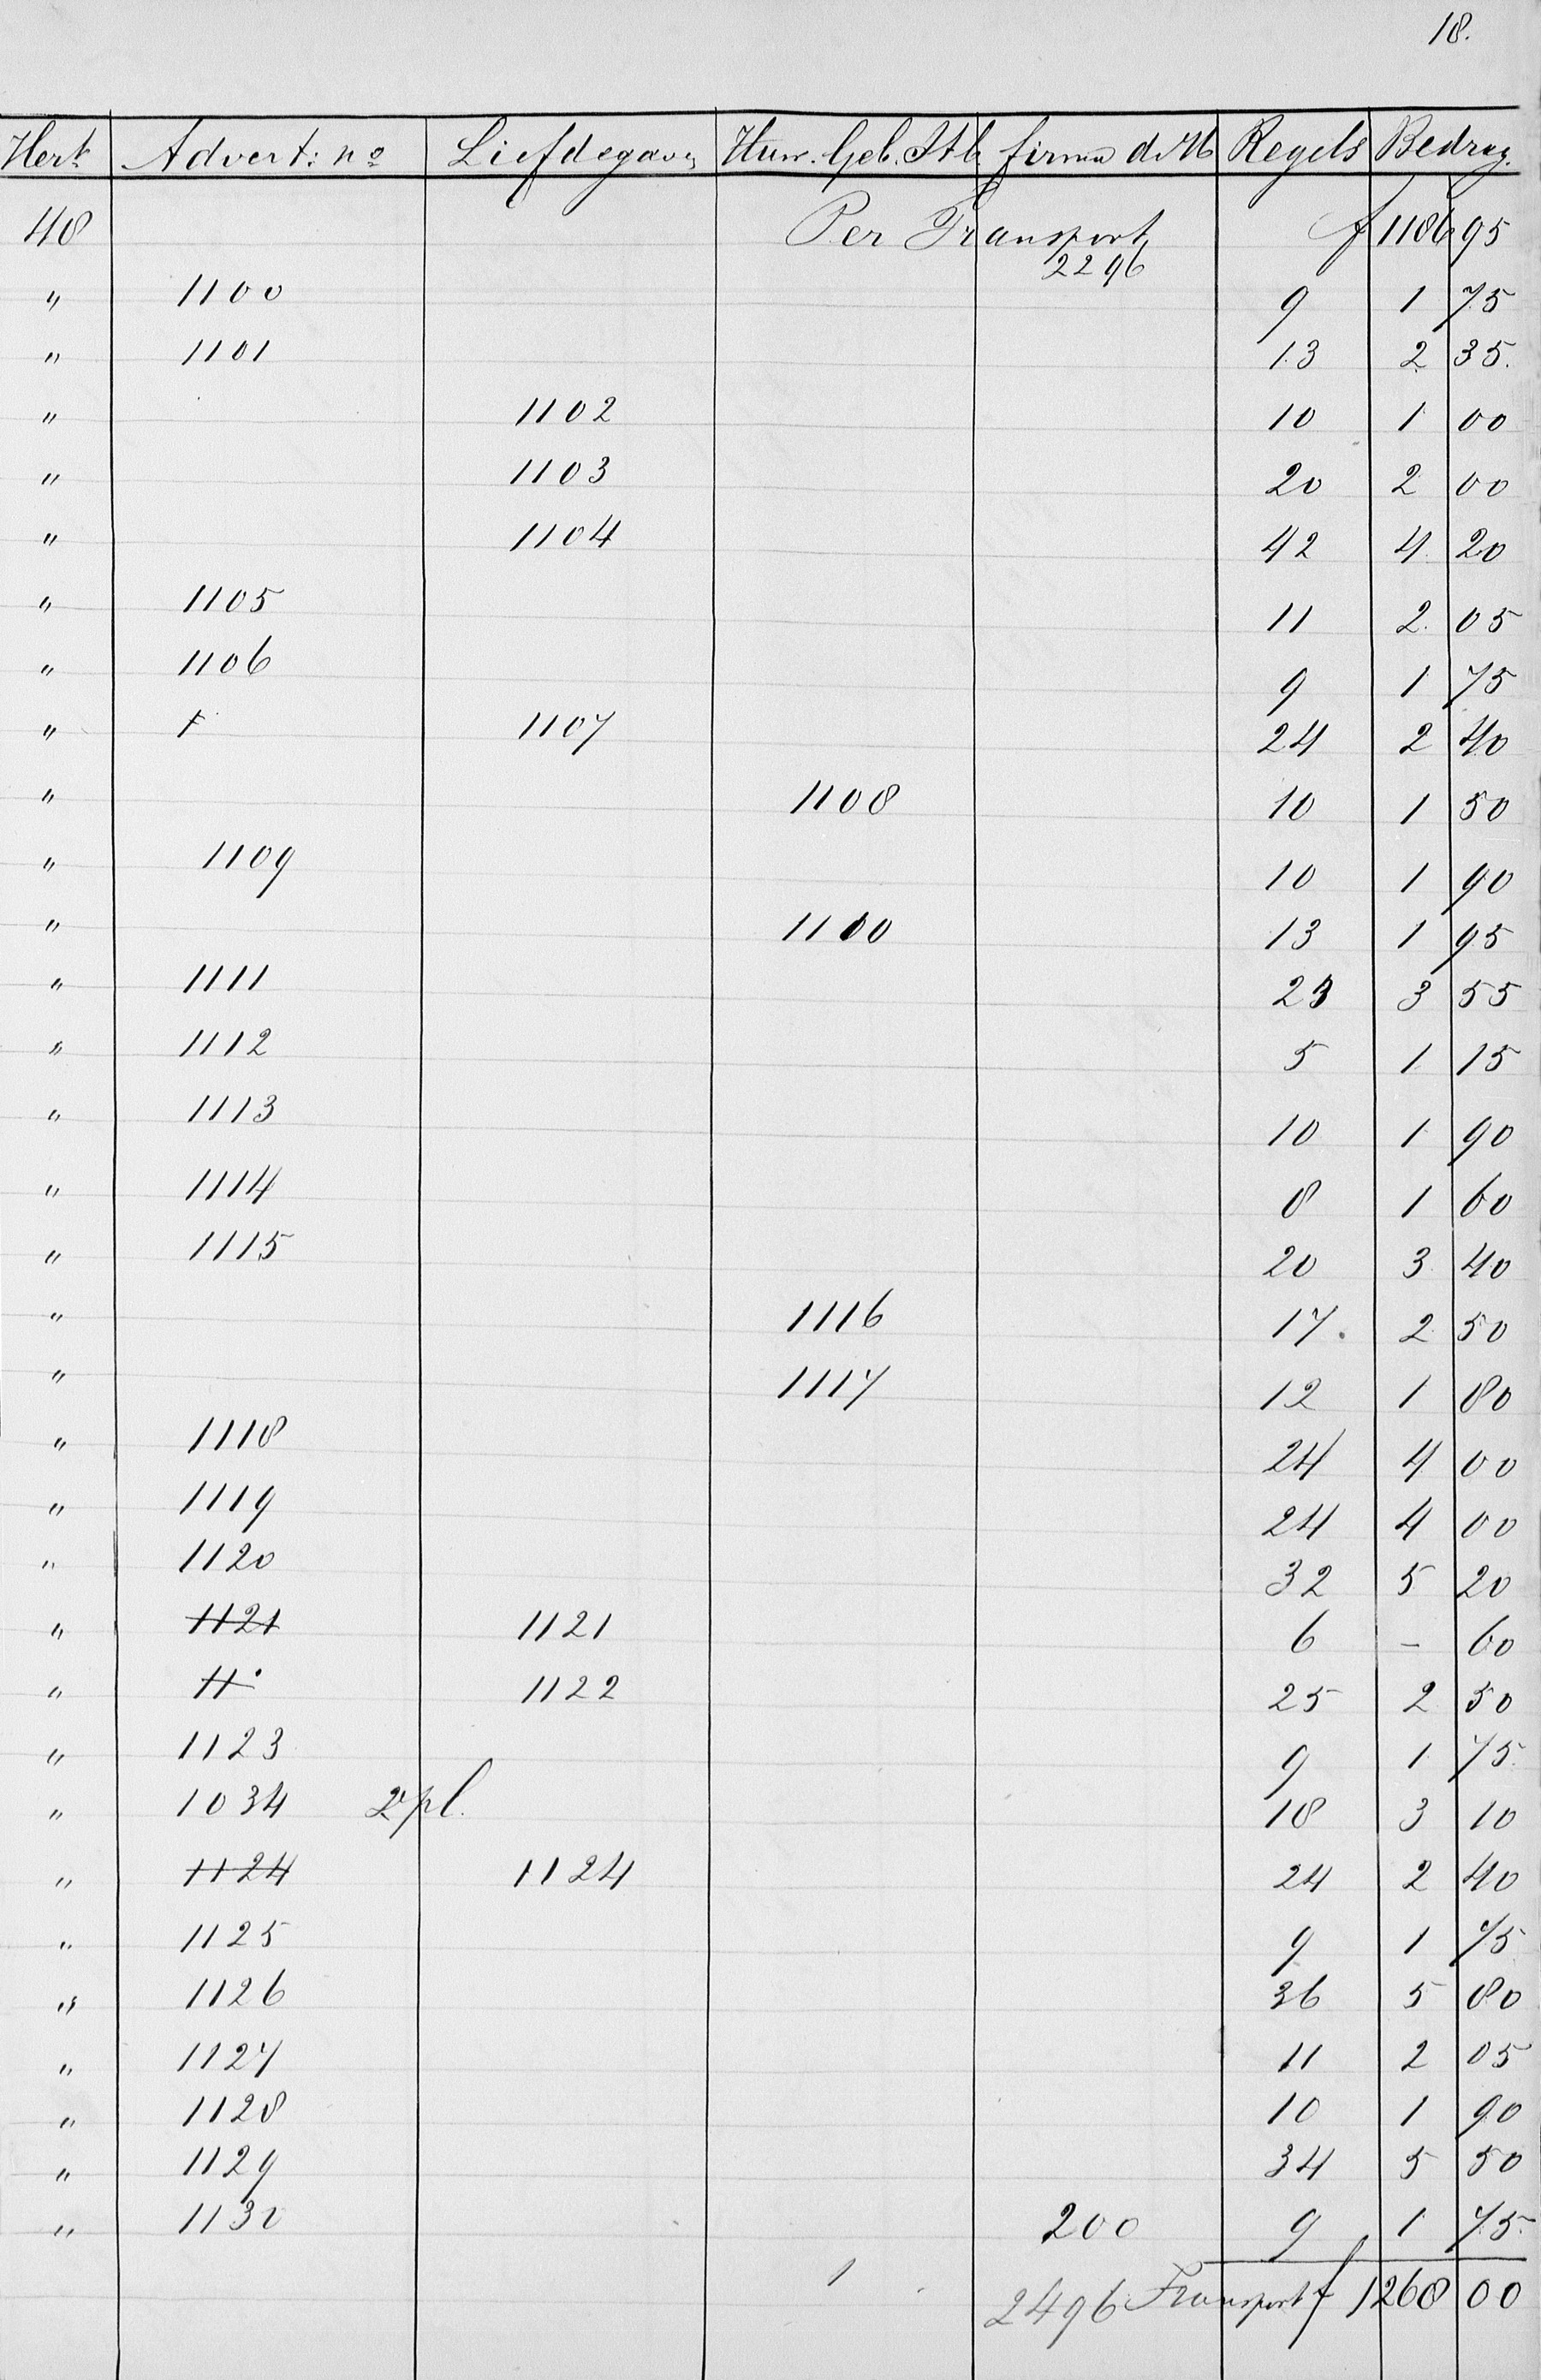 18.
Hert. Advert: no Liefdegav. Huw. Geb. Stb firma d. M Regels Bedrag.
48 Per Transport f 1186 95
2296
" 1100 9 1 75
" 1101 13 2 35.
" 1102 10 1 00
" 1103 20 2 00
" 1104 42 4 20
" 1105 11 2 05
" 1106 9 1 75
" 1107 24 2 40
" 1108 10 1 50
" 1109 10 1 90
" 1100 13 1 95
" 1111 21 3 55
" 1112 5 1 15
" 1113 10 1 90
" 1114 8 1 60
" 1115 20 3 40
" 1116 17. 2 50
" 1117 12 1 80
" 1118 24 4 00
" 1119 24 4 00
" 1120 32 5 20
" 1121 1121 6 – 60
" 11 1122 25 2 50
" 1123 9 1 75.
" 1034 2 pl. 18 3 10
" 1124 1124 24 2 40
" 1125 9 1 75
" 1126 36 5 80
" 1127 11 2 05
" 1128 10 1 90
" 1129 34 5 50
" 1130 200 9 1 75.
2496 Transport f 1268 00